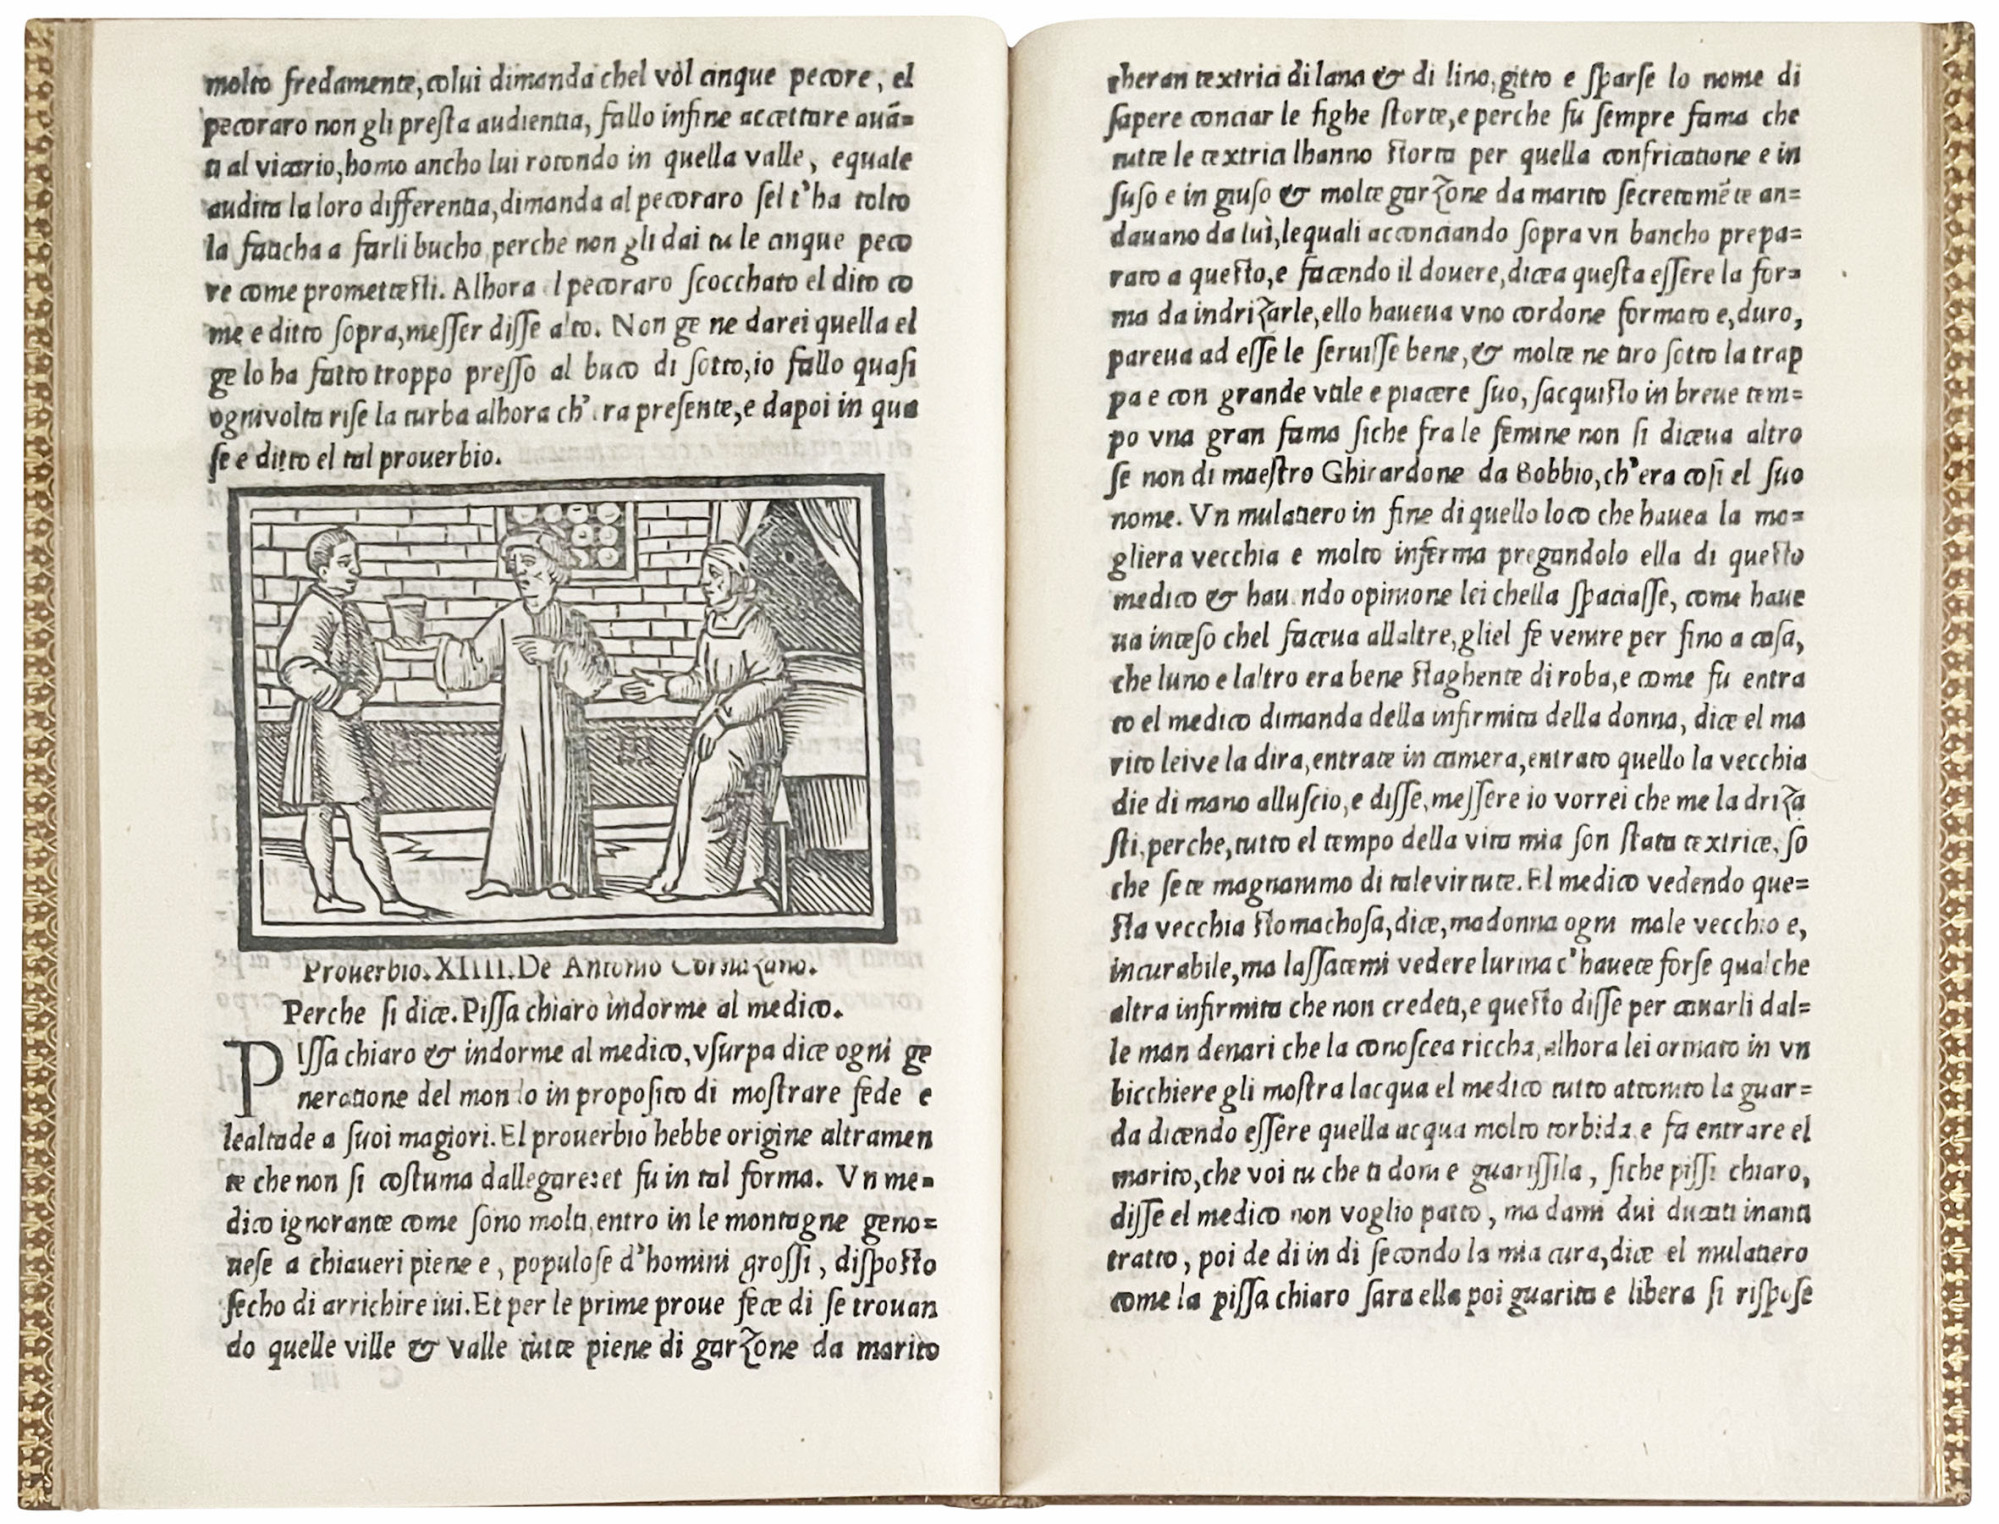 molto fredamente, colui dimanda chel vòl cinque pecore, el
pecoraro non gli presta audientia, fallo infine accettare auá=
ti al vicario, homo ancho lui rotondo in quella valle, equale
audita la loro differentia, dimanda al pecoraro sel t'ha tolto
la faticha a farli bucho, perche non gli dai tu le cinque peco
re come promettesti. Alhora l pecoraro scocchato el dito co
me e ditto sopra, messer disse alto. Non ge ne darei quella el
ge lo ha fatto troppo presso al buco di sotto, io fallo quasi
ogni volta rise la turba alhora ch' ra presente, e dapoi in qua
se e ditto el tal prouerbio.
Prouerbio. XIIII. De Antonio Cornazano.
Perche si dice. Pissa chiaro indorme al medico.
PIssa chiaro & indorme al medico, vsurpa dice ogni ge
neratione del mondo in proposito di mostrare fede e
lealtade a suoi magiori. El prouerbio hebbe origine altramen
te che non si costuma dallegare: et fu in tal forma. Vn me=
dico ignorante come sono molti, entro in le montagne geno=
uese a chiaueri piene e, populose d'homini grossi, disposto
secho di arrichire iui. Et per le prime proue fece di se trouan
do quelle ville & valle tutte piene di garzone da marito
cheran textrici di lana & di lino, gitto e sparse lo nome di
sapere conciar le fighe storte, e perche fu sempre fama che
tutte le textrici lhanno storta per quella confricatione e in
suso e in giuso & molte garzone da marito secretamēte an=
dauano da lui, lequali acconciando sopra vn bancho prepa=
rato a questo, e facendo il douere, dicea questa essere la for=
ma da indrizarle, ello haueua vno cordone formato e, duro,
pareua ad esse le seruisse bene, & molte ne tiro sotto la trap
pa e con grande vtile e piacere suo, sacquisto in breue tem=
po vna gran fama siche fra le femine non si diceua altro
se non di maestro Ghirardone da Bobbio, ch'era cosi el suo
nome. Vn mulatiero in fine di quello loco che hauea la mo=
gliera vecchia e molto inferma pregandolo ella di questo
medico & hau ndo opinione lei chella spaciasse, come haue
ua inteso chel faceua allaltre, gliel fe venire per fino a casa,
che luno e laltro era bene staghente di roba, e come fu entra
to el medico dimanda della infirmita della donna, dice el ma
rito lei ve la dira, entrate in camera, entrato quello la vecchia
die di mano alluscio, e disse, messere io vorrei che me la driza
sti, perche, tutto el tempo della vita mia son stata textrice, so
che sete magnanimo di tale virtute. El medico vedendo que=
sta vecchia stomachosa, dice, madonna ogni male vecchio e,
incurabile, ma lassatemi vedere lurina c'hauete forse qualche
altra infirmita che non credeti, e questo disse per cauarli dal=
le man denari che la conoscea riccha, alhora lei orinato in vn
bicchiere gli mostra lacqua el medico tutto attonito la guar=
da dicendo essere quella acqua molto torbida e fa entrare el
marito, che voi tu che ti doni e guarissila, siche pissi chiaro,
disse el medico non voglio patto, ma dami dui ducati inanti
tratto, poi de di in di secondo la mia cura, dice el mulatiero
come la pissa chiaro sara ella poi guarita e libera si rispose